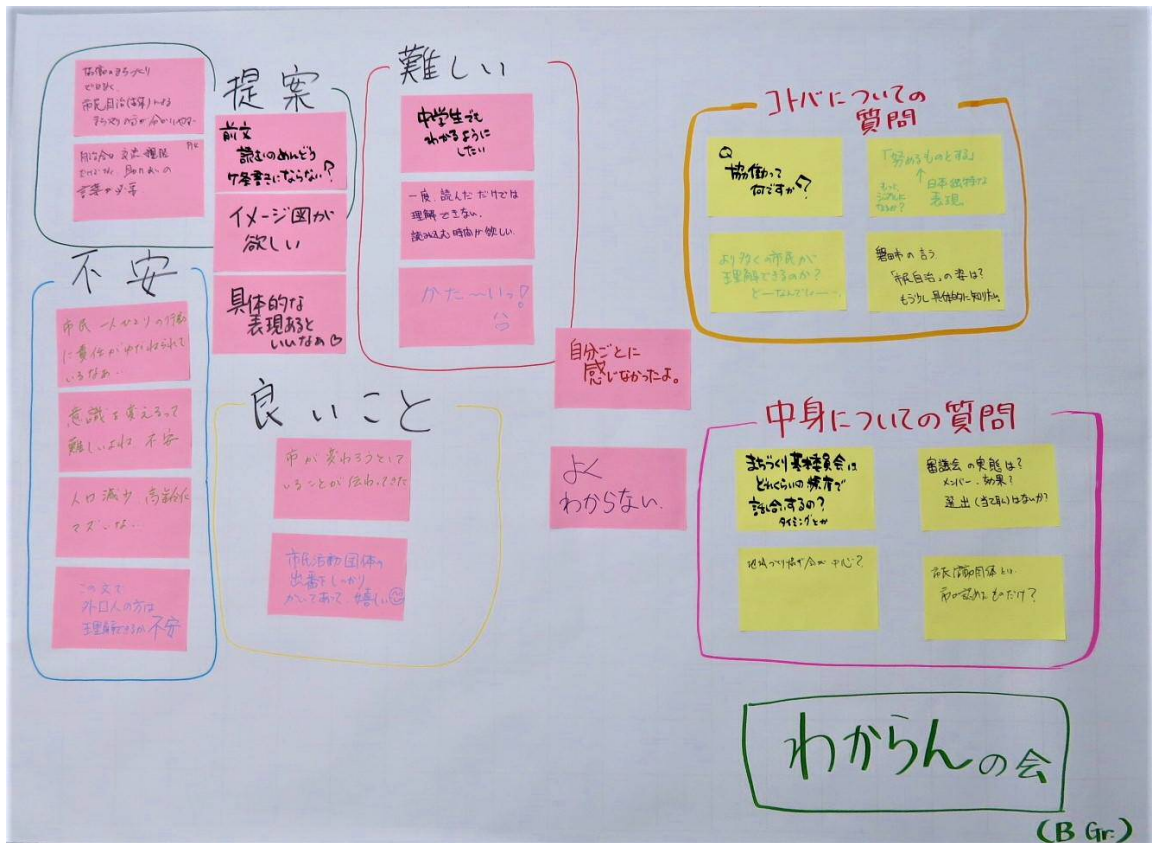 提案
協働のまちづくり
ではなく、
市民自治(営業)による
まちづくりの方が分かりやすい
自治会は交流・親睦
だけでなく、助け合いの
言葉が必要
前文
読むのめんどう
ケ条書きにならない?
イメージ図が
欲しい
具体的な
表現あると
いいなぁ♡
難しい
中学生でも
わかるように
したい
一度、読んだだけでは
理解できない。
読み込む時間が欲しい。
かた〜いっ!
不安
市民一人ひとりの行動
に責任がゆだねられて
いるなぁ..
意識を変えるって
難しいよね 不安
人口減少 高齢化
マズいな..
この文で
外国人の方は
理解できるか 不安
良いこと
市が変わろうとして
いることが伝わってきた
市民活動団体の
出番もしっかり
かいてあって、嬉しい
自分ごとに
感じなかったよ。
よく
わからない.
コトバについての
質問
Q
協働って
何ですか?
「努めるものとする」
↑日本独特な
表現
より多くの市民が
理解できるのか?
どーなんでしょー…
磐田市の言う
「市民自治」の姿は?
もう少し具体的に知りたい。
中身についての質問
まちづくり基本委員会は
どれくらいの頻度で
話し合いするの?
タイミングとか
審議会の実態は?
メンバー、効果?
選出(当て職)はないか?
地域づくり協議会が中心?
市民活動団体とは、
市が認めるものだけ?
わからんの会
(B Gr.)